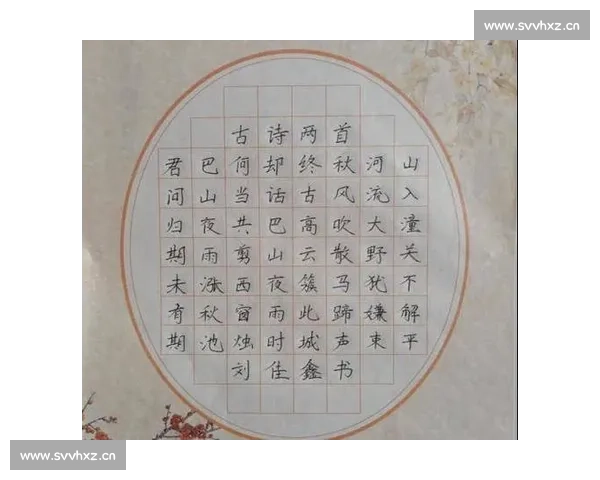 www.svvhxz.cn
古诗两首
君问归期未有期
巴山夜雨涨秋池
何当共剪西窗烛
却话巴山夜雨时
终古高云簇此城
秋风吹散马蹄声
河流大野犹嫌束
山入潼关不解平
刘佳鑫书
www.svvhxz.cn